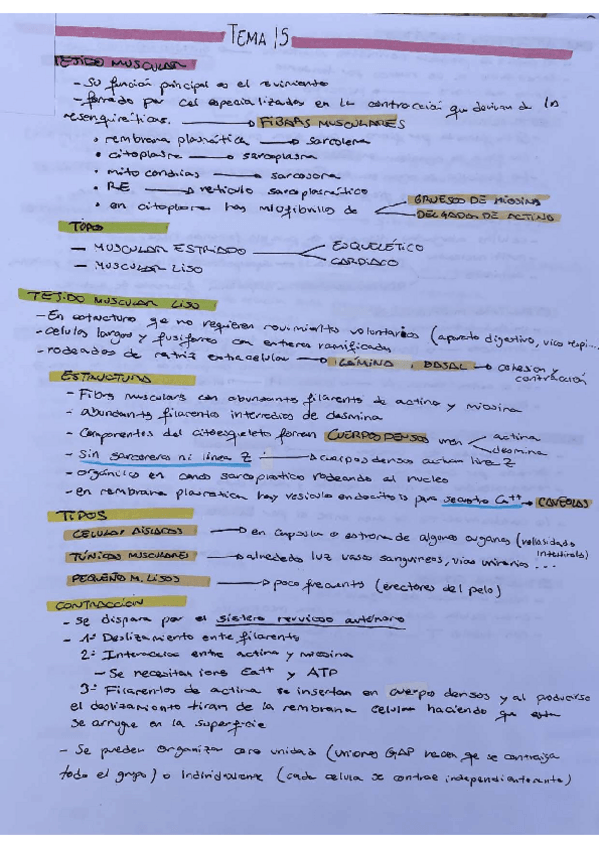 TEMA 15
TEJIDO MUSCULAR
- Su función principal es el movimiento
- formado por cel especializadas en la contracción que derivan de las
mesenquimáticas. → FIBRAS MUSCULARES
• membrana plasmática → sarcolema
• citoplasma → sarcoplasma
• mitocondrias → sarcosoma
• RE → retículo sarcoplasmático
• en citoplasma hay miofibrillas de GRUESOS DE MIOSINA
DELGADOS DE ACTINA
TIPOS
- MUSCULAR ESTRIADO ESQUELÉTICO
CARDIACO
- MUSCULAR LISO
TEJIDO MUSCULAR LISO
- En estructuras que no requieren movimientos voluntarios (aparato digestivo, vías respi...
- celulas largas y fusiformes con extremos ramificados
- rodeados de matriz extracelular → LÁMINA BASAL → cohesion y
contracción
ESTRUCTURA
- Fibras musculares con abundantes filamento de actina y miosina
- abundants filamentos intermedios de desmina
- Componentes del citoesqueleto forman CUERPOS DENSOS unen actina
desmina
- Sin sarcomeras ni línea Z → cuerpos densos actuan línea Z
- orgánulos en conos sarcoplástico rodeando al nucleo
- en membrana plasmatica hay vesiculas endocitosis para secuestro Ca++ → CAVEOLAS
TIPOS
CELULAS AISLADAS → en capsula o estroma de algunos organos (vellosidades
intestinales)
TÚNICAS MUSCULARES → alrededor luz vasos sanguineos, vías urinarias ...
PEQUEÑO M. LISOS → poco frecuente (erectores del pelo)
CONTRACCIÓN
- Se dispara por el sistema nervioso autónomo
- 1º Deslizamiento entre filamento
2º Interacción entre actina y miosina
- Se necesitan iones Ca++ y ATP
3º Filamentos de actina se insertan en cuerpo densos y al producirse
el deslizamiento tiran de la membrana celular haciendo que esta
se arrugue en la superficie
- Se pueden organizar como unidad (uniones GAP hacen que se contraiga
todo el grupo) o individualmente (cada celula se contrae independientemente)